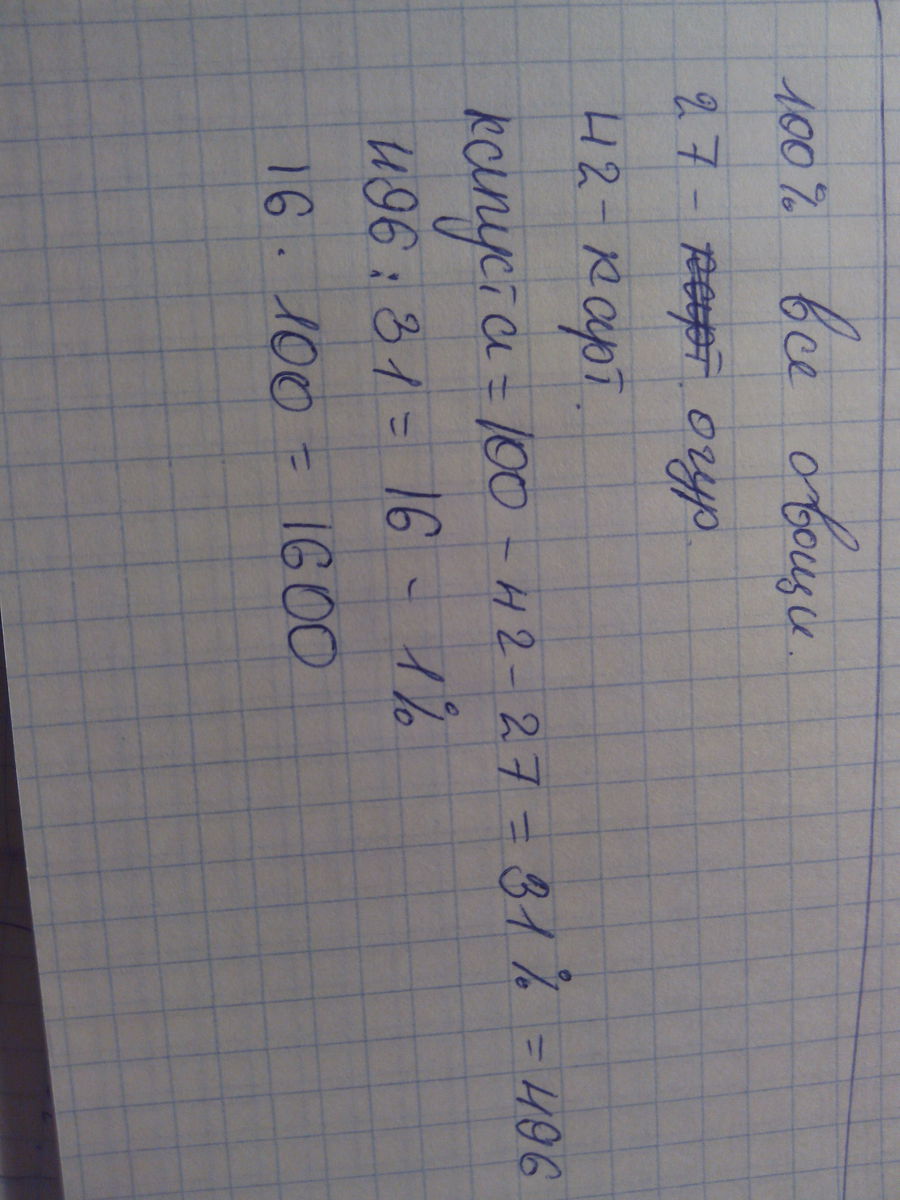 100% все овощи.
27 - карт. огур.
42 - карт.
капуста = 100 - 42 - 27 = 31% = 496
496 : 31 = 16 - 1%
16 · 100 = 1600